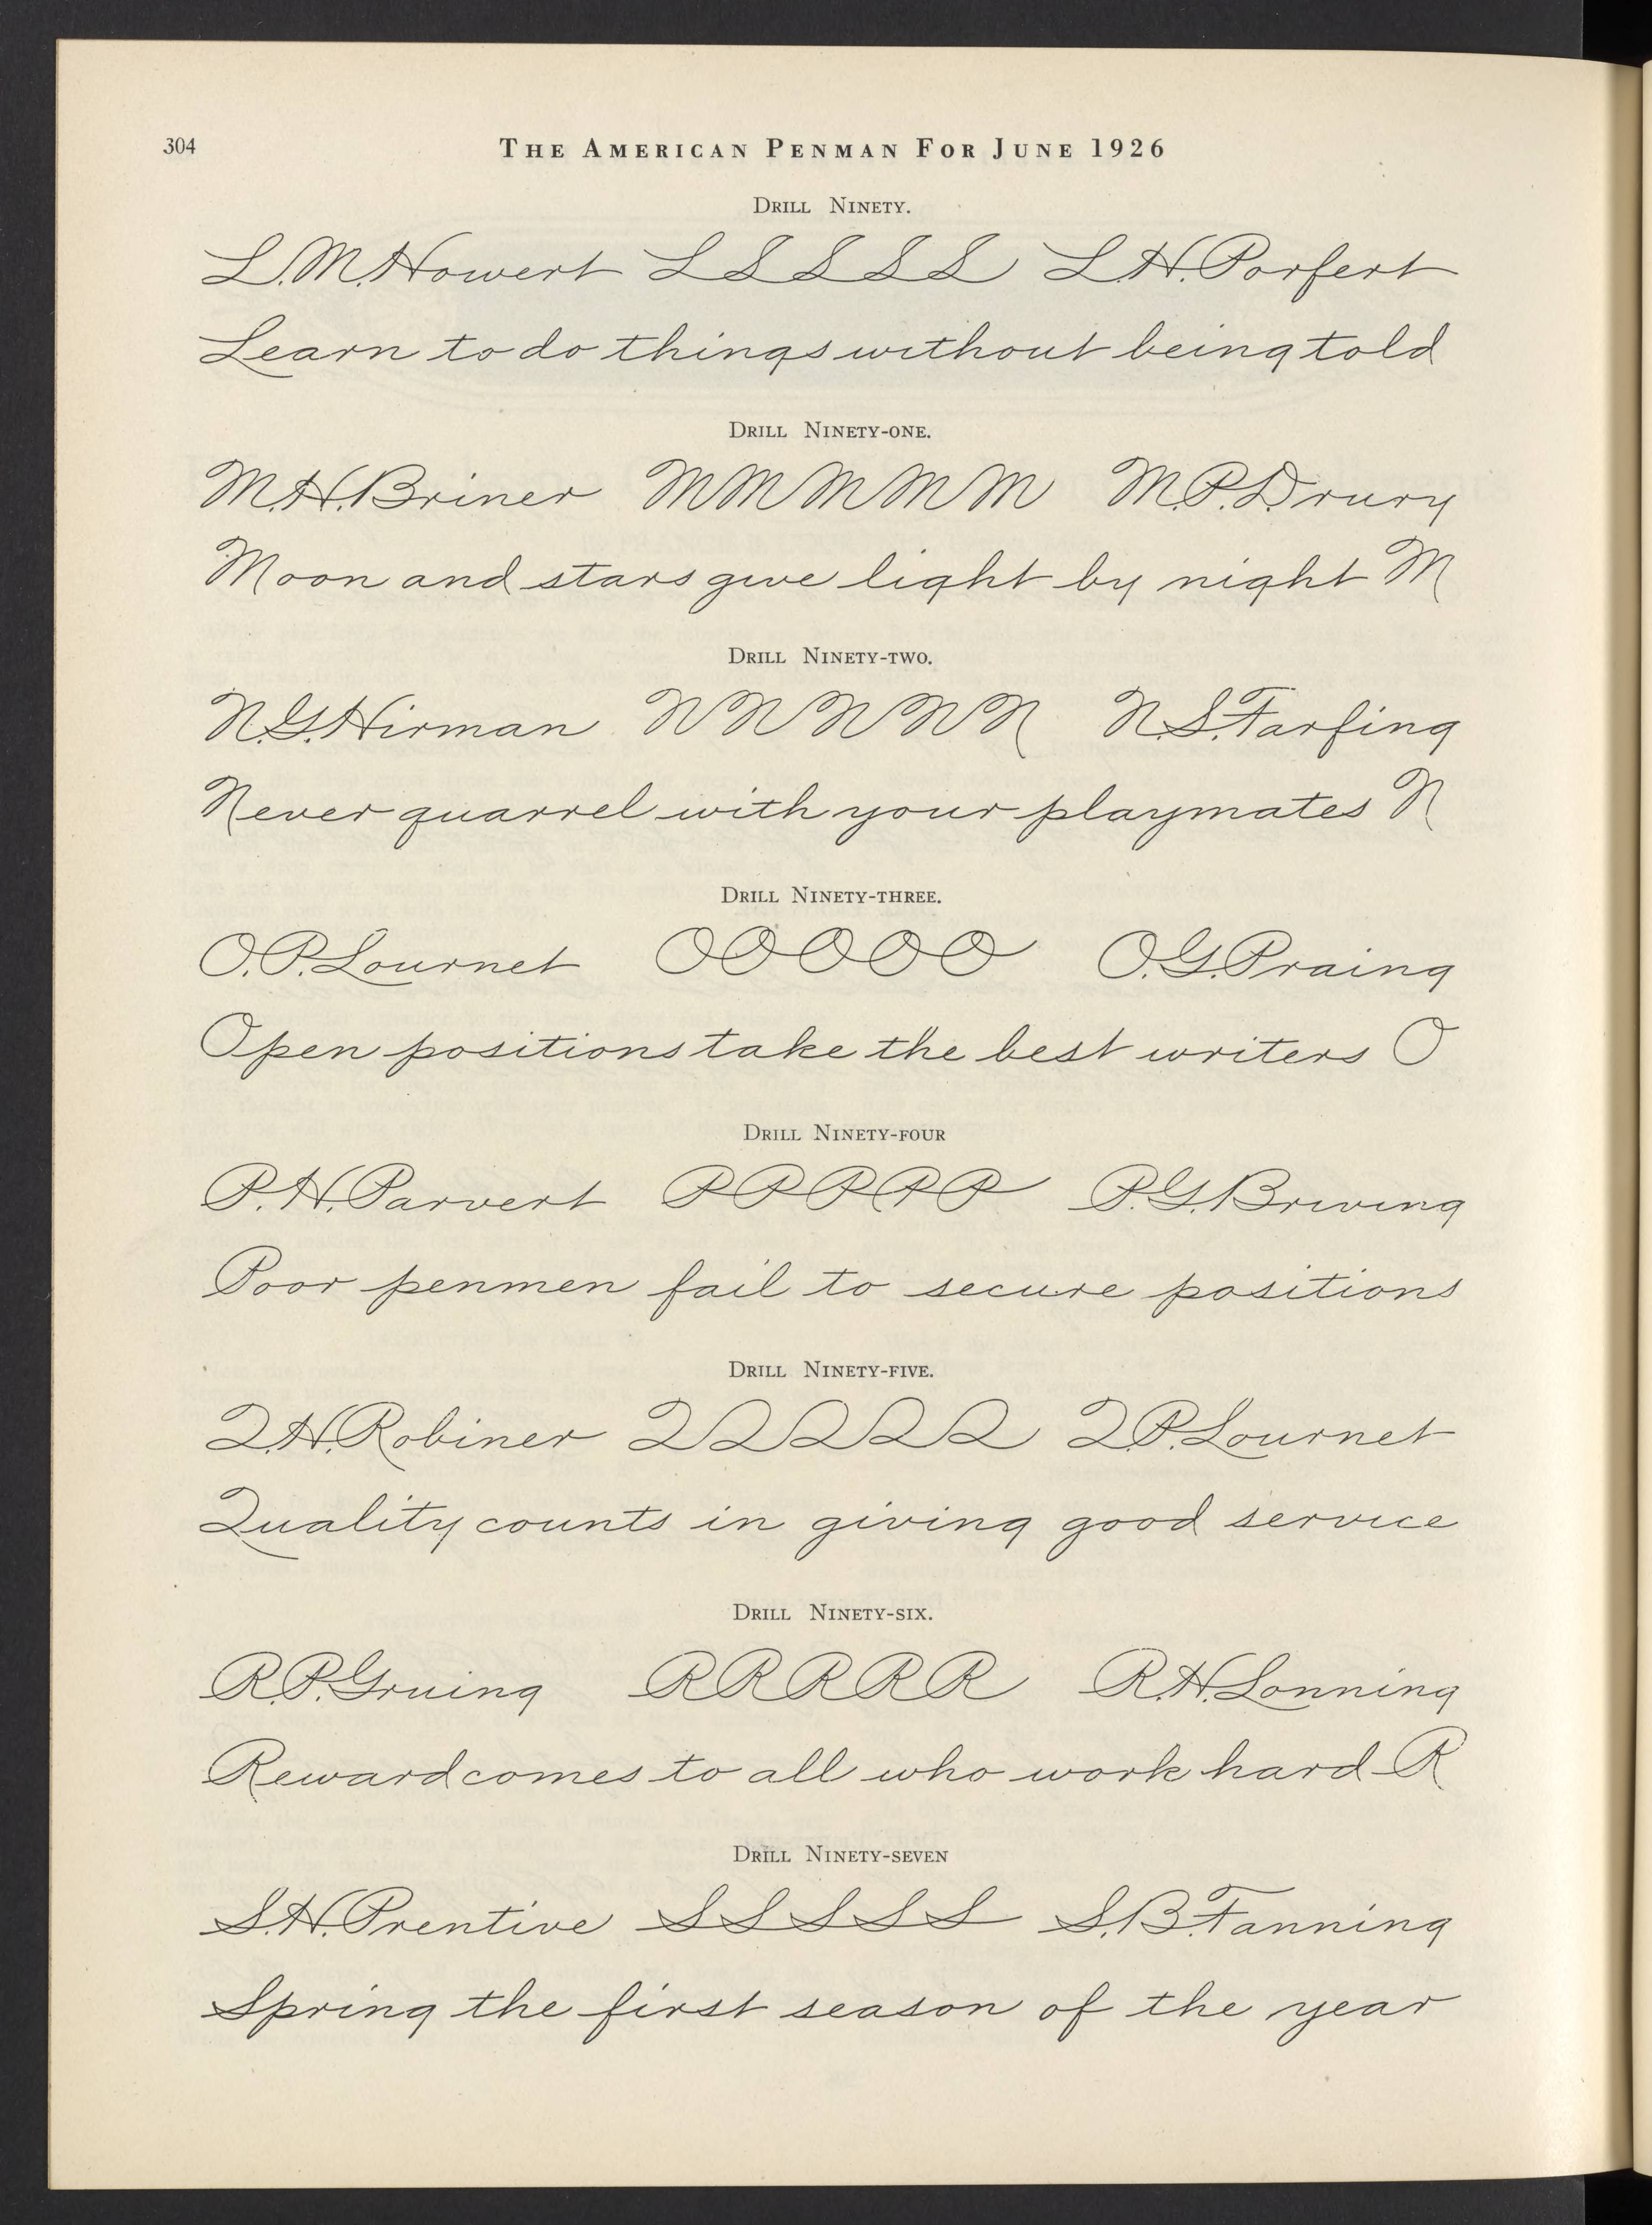 304
THE AMERICAN PENMAN FOR JUNE 1926
DRILL NINETY.
L.M.Howert L L L L L L.H.Porfert
Learn to do things without being told
DRILL NINETY-ONE.
M.H.Briner M M M M M M.P.Drury
Moon and stars give light by night M
DRILL NINETY-TWO.
N.G.Hirman N N N N N N.S.Farfing
Never quarrel with your playmates N
DRILL NINETY-THREE.
O.P.Lournet O O O O O O.G.Praing
Open positions take the best writers O
DRILL NINETY-FOUR
P.H.Parvert P P P P P P.G.Briving
Poor penmen fail to secure positions
DRILL NINETY-FIVE.
Q.H.Robiner Q Q Q Q Q Q.P.Lournet
Quality counts in giving good service
DRILL NINETY-SIX.
R.P.Gruing R R R R R R.H.Lonning
Reward comes to all who work hard R
DRILL NINETY-SEVEN
S.H.Prentive S S S S S S.B.Fanning
Spring the first season of the year